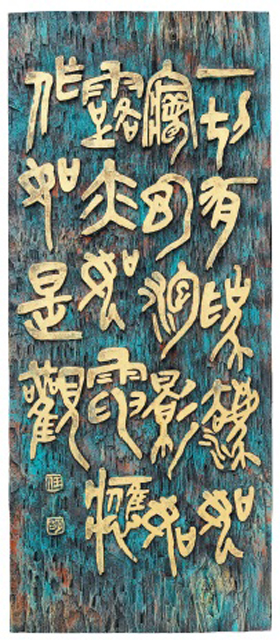 一切有為法如
夢幻泡影如
露亦如電應
作如是觀